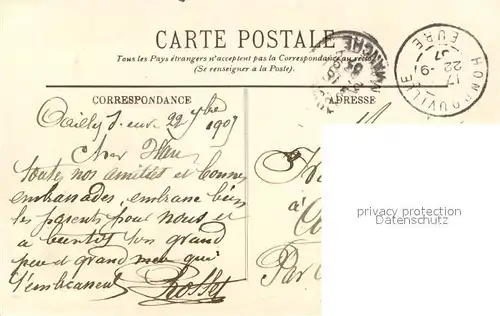 CARTE POSTALE
Tous les Pays étrangers n'acceptent pas la Correspondance au recto
(Se renseigner à la Poste).
HONDOUVILLE
17
22 - 9
07
EURE
MANCHE
CORRESPONDANCE
ADRESSE
22 7bre
1907
Cher
toute nos amitiés et bonnes
embrassades, embrasse bien
les parents pour nous et
a bientôt ton grand
père et grand mère qui
t'embrassent
à
Par
privacy protection
Datenschutz